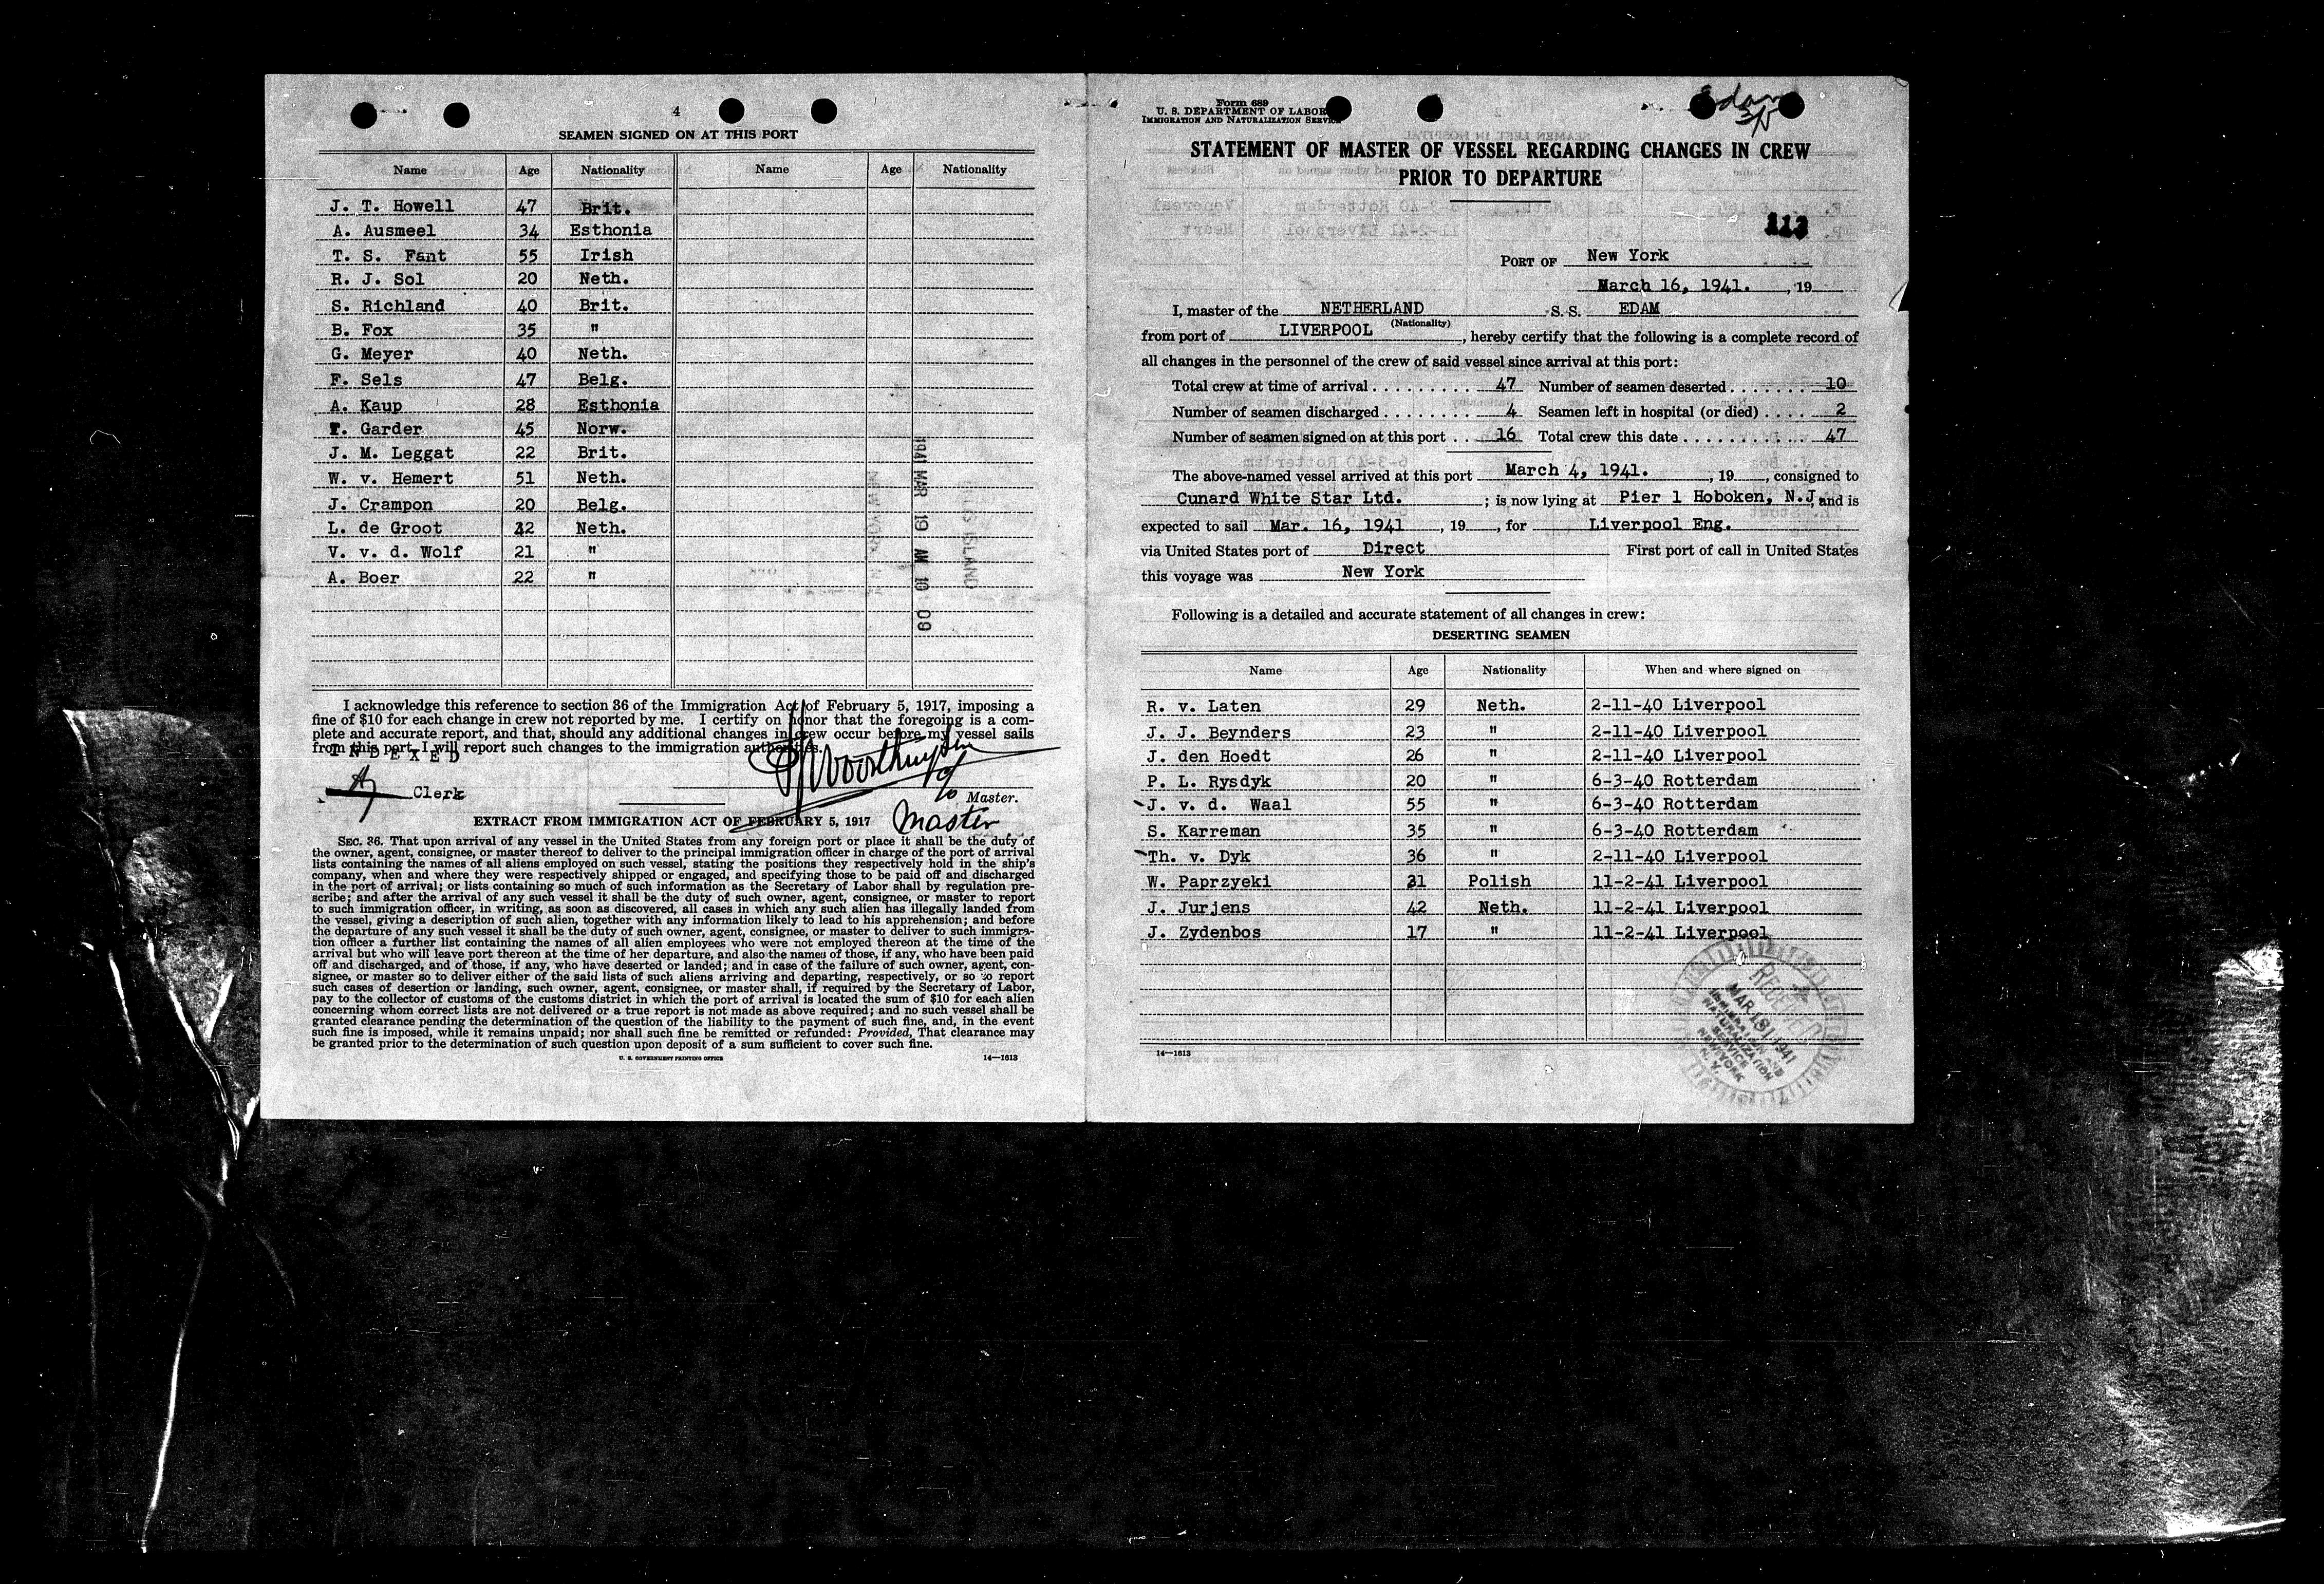 4
SEAMEN SIGNED ON AT THIS PORT
Name Age Nationality Name Age Nationality
J. T. Howell 47 Brit.
A. Ausmeel 34 Esthonia
T. S. Fant 55 Irish
R. J. Sol 20 Neth.
S. Richland 40 Brit.
B. Fox 35 "
G. Meyer 40 Neth.
F. Sels 47 Belg.
A. Kaup 28 Esthonia
T. Garder 45 Norw.
J. M. Leggat 22 Brit.
W. v. Hemert 51 Neth.
J. Crampon 20 Belg.
L. de Groot 42 Neth.
V. v. d. Wolf 21 "
A. Boer 22 "
1941 MAR 19 AM 10 09
ISLAND
I acknowledge this reference to section 36 of the Immigration Act of February 5, 1917, imposing a
fine of $10 for each change in crew not reported by me. I certify on honor that the foregoing is a com-
plete and accurate report, and that, should any additional changes in crew occur before my vessel sails
from this port, I will report such changes to the immigration authorities.
INDEXED
Clerk
Master.
Master
EXTRACT FROM IMMIGRATION ACT OF FEBRUARY 5, 1917
SEC. 36. That upon arrival of any vessel in the United States from any foreign port or place it shall be the duty of
the owner, agent, consignee, or master thereof to deliver to the principal immigration officer in charge of the port of arrival
lists containing the names of all aliens employed on such vessel, stating the positions they respectively hold in the ship's
company, when and where they were respectively shipped or engaged, and specifying those to be paid off and discharged
in the port of arrival; or lists containing so much of such information as the Secretary of Labor shall by regulation pre-
scribe; and after the arrival of any such vessel it shall be the duty of such owner, agent, consignee, or master to report
to such immigration officer, in writing, as soon as discovered, all cases in which any such alien has illegally landed from
the vessel, giving a description of such alien, together with any information likely to lead to his apprehension; and before
the departure of any such vessel it shall be the duty of such owner, agent, consignee, or master to deliver to such immigra-
tion officer a further list containing the names of all alien employees who were not employed thereon at the time of the
arrival but who will leave port thereon at the time of her departure, and also the names of those, if any, who have been paid
off and discharged, and of those, if any, who have deserted or landed; and in case of the failure of such owner, agent, con-
signee, or master so to deliver either of the said lists of such aliens arriving and departing, respectively, or so to report
such cases of desertion or landing, such owner, agent, consignee, or master shall, if required by the Secretary of Labor,
pay to the collector of customs of the customs district in which the port of arrival is located the sum of $10 for each alien
concerning whom correct lists are not delivered or a true report is not made as above required; and no such vessel shall be
granted clearance pending the determination of the question of the liability to the payment of such fine, and, in the event
such fine is imposed, while it remains unpaid; nor shall such fine be remitted or refunded: Provided, That clearance may
be granted prior to the determination of such question upon deposit of a sum sufficient to cover such fine.
U. S. GOVERNMENT PRINTING OFFICE 14—1613
Form 689
U. S. DEPARTMENT OF LABOR
IMMIGRATION AND NATURALIZATION SERVICE
Edam
STATEMENT OF MASTER OF VESSEL REGARDING CHANGES IN CREW
PRIOR TO DEPARTURE
113
PORT OF New York
March 16, 1941. , 19
I, master of the NETHERLAND S. S. EDAM
(Nationality)
from port of LIVERPOOL , hereby certify that the following is a complete record of
all changes in the personnel of the crew of said vessel since arrival at this port:
Total crew at time of arrival . . . . . . . . . . 47 Number of seamen deserted . . . . . . . 10
Number of seamen discharged . . . . . . . . 4 Seamen left in hospital (or died) . . . . 2
Number of seamen signed on at this port . . 16 Total crew this date . . . . . . . . . . . 47
The above-named vessel arrived at this port March 4, 1941. , 19 , consigned to
Cunard White Star Ltd. ; is now lying at Pier 1 Hoboken, N.J, and is
expected to sail Mar. 16, 1941 , 19 , for Liverpool Eng.
via United States port of Direct First port of call in United States
this voyage was New York
Following is a detailed and accurate statement of all changes in crew:
DESERTING SEAMEN
Name Age Nationality When and where signed on
R. v. Laten 29 Neth. 2-11-40 Liverpool
J. J. Beynders 23 " 2-11-40 Liverpool
J. den Hoedt 26 " 2-11-40 Liverpool
P. L. Rysdyk 20 " 6-3-40 Rotterdam
J. v. d. Waal 55 " 6-3-40 Rotterdam
S. Karreman 35 " 6-3-40 Rotterdam
Th. v. Dyk 36 " 2-11-40 Liverpool
W. Paprzyeki 31 Polish 11-2-41 Liverpool
J. Jurjens 42 Neth. 11-2-41 Liverpool
J. Zydenbos 17 " 11-2-41 Liverpool
RECEIVED
MAR 18 1941
IMMIGRATION &
NATURALIZATION
SERVICE
NEW YORK
N. Y.
14—1613